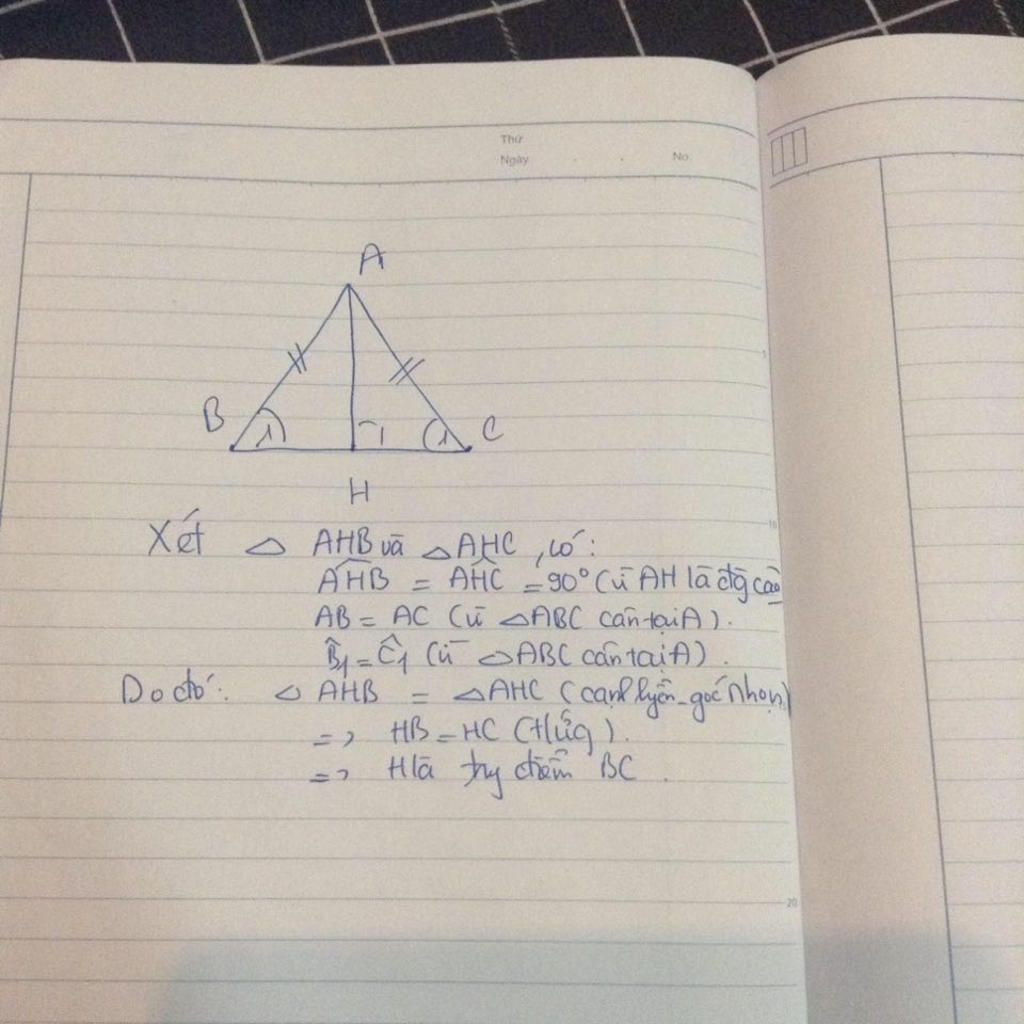 Thứ
Ngày . . No.
A
B 1 1 1 C
H
Xét △ AHB và △ AHC, có:
AHB = AHC = 90° (vì AH là đg cao
AB = AC (vì △ABC cân tại A).
B̂1 = Ĉ1 (vì △ABC cân tại A).
Do đó: △ AHB = △AHC (cạnh huyền - góc nhọn)
=> HB = HC (tứ).
=> H là trg điểm BC.
5
10
20